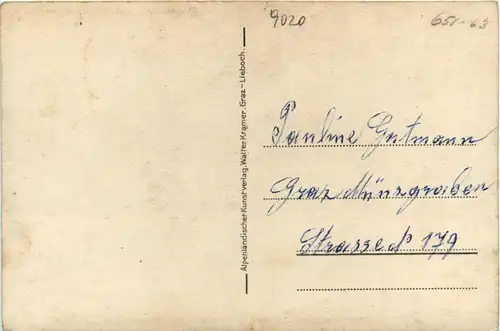 9020
651-63
Alpenländischer Kunstverlag, Walter Kramer, Graz - Lieboch.
Pauline Gutmann
Graz Münzgraben
Strasse No 179